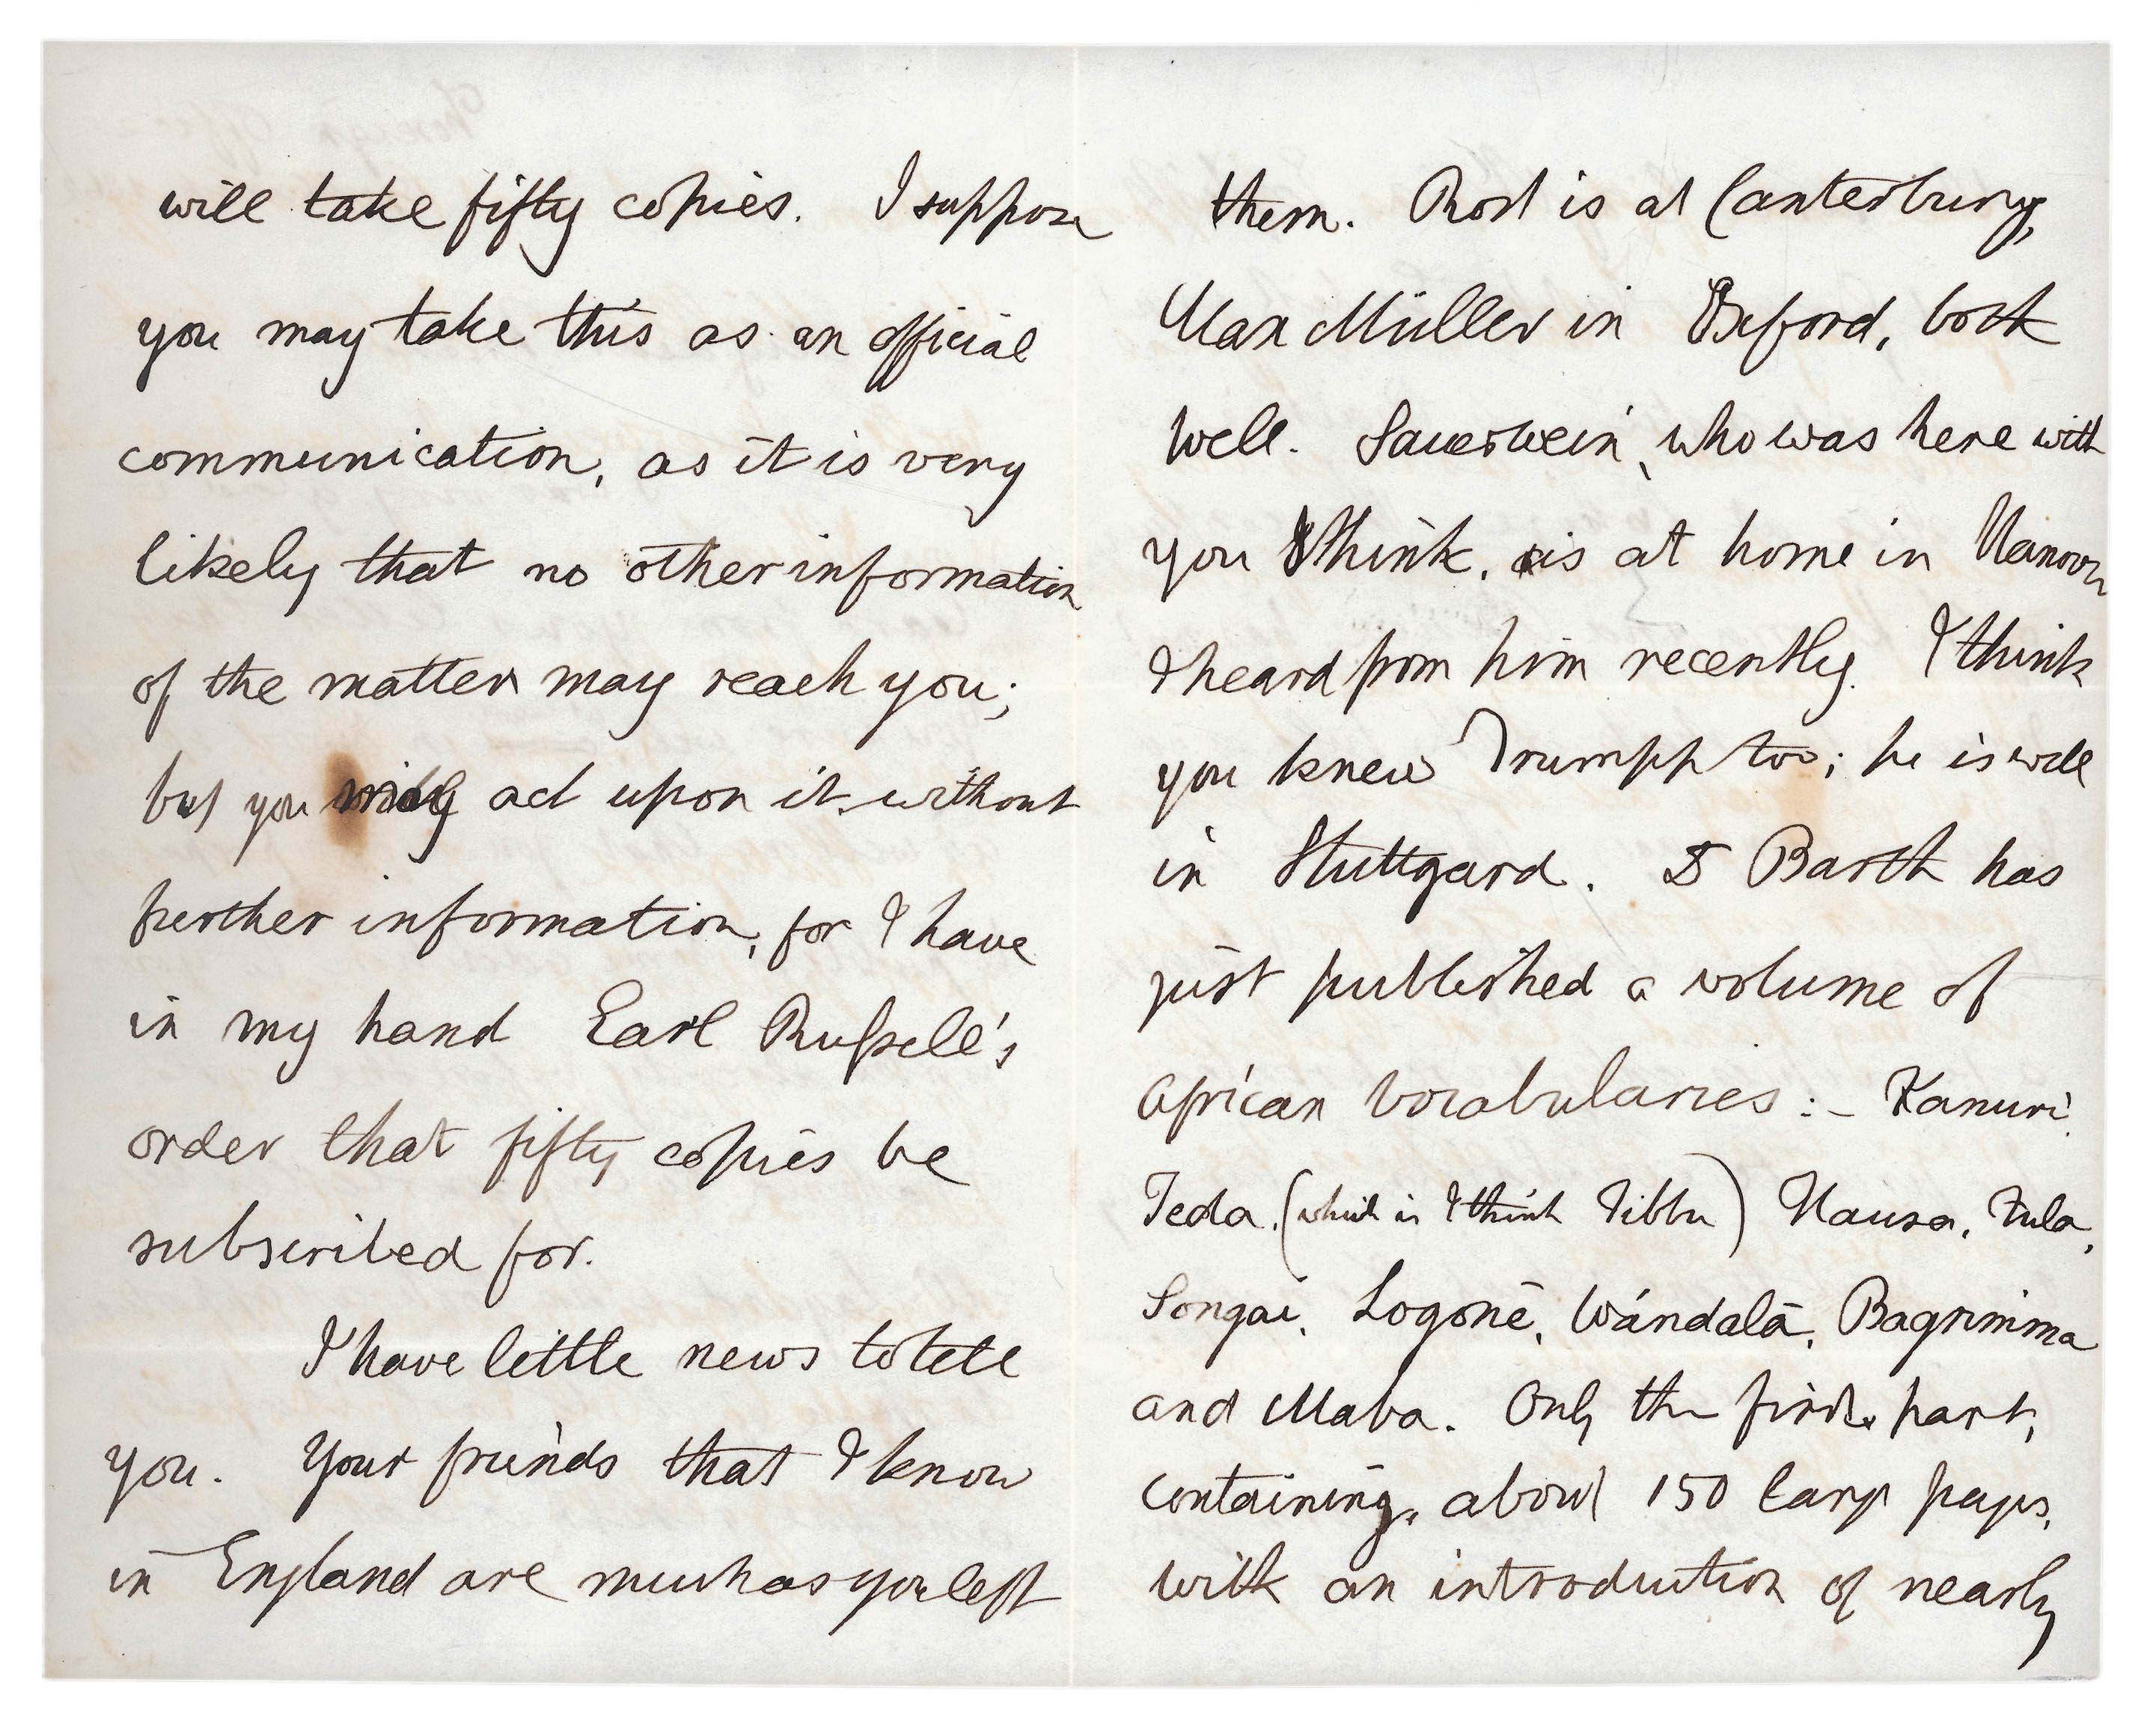 will take fifty copies. I suppose
you may take this as an official
communication, as it is very
likely that no other information
of the matter may reach you;
but you may act upon it without
further information, for I have
in my hand Earl Russell's
order that fifty copies be
subscribed for.
I have little news to tell
you. Your friends that I know
in England are much as you left
them. Rost is at Canterbury,
Max Müller in Oxford, both
well. Sauerwein, who was here with
you I think, is at home in Hanover
I heard from him recently. I think
you knew Trumpp too; he is well
in Stuttgard. Dr Barth has
just published a volume of
African vocabularies :- Kanuri,
Teda, (which is I think Tibbu) Hausa, Fula,
Songai, Logonē, Wándalā, Bagrimma
and Maba. Only the first part,
containing, about 150 large pages,
with an introduction of nearly